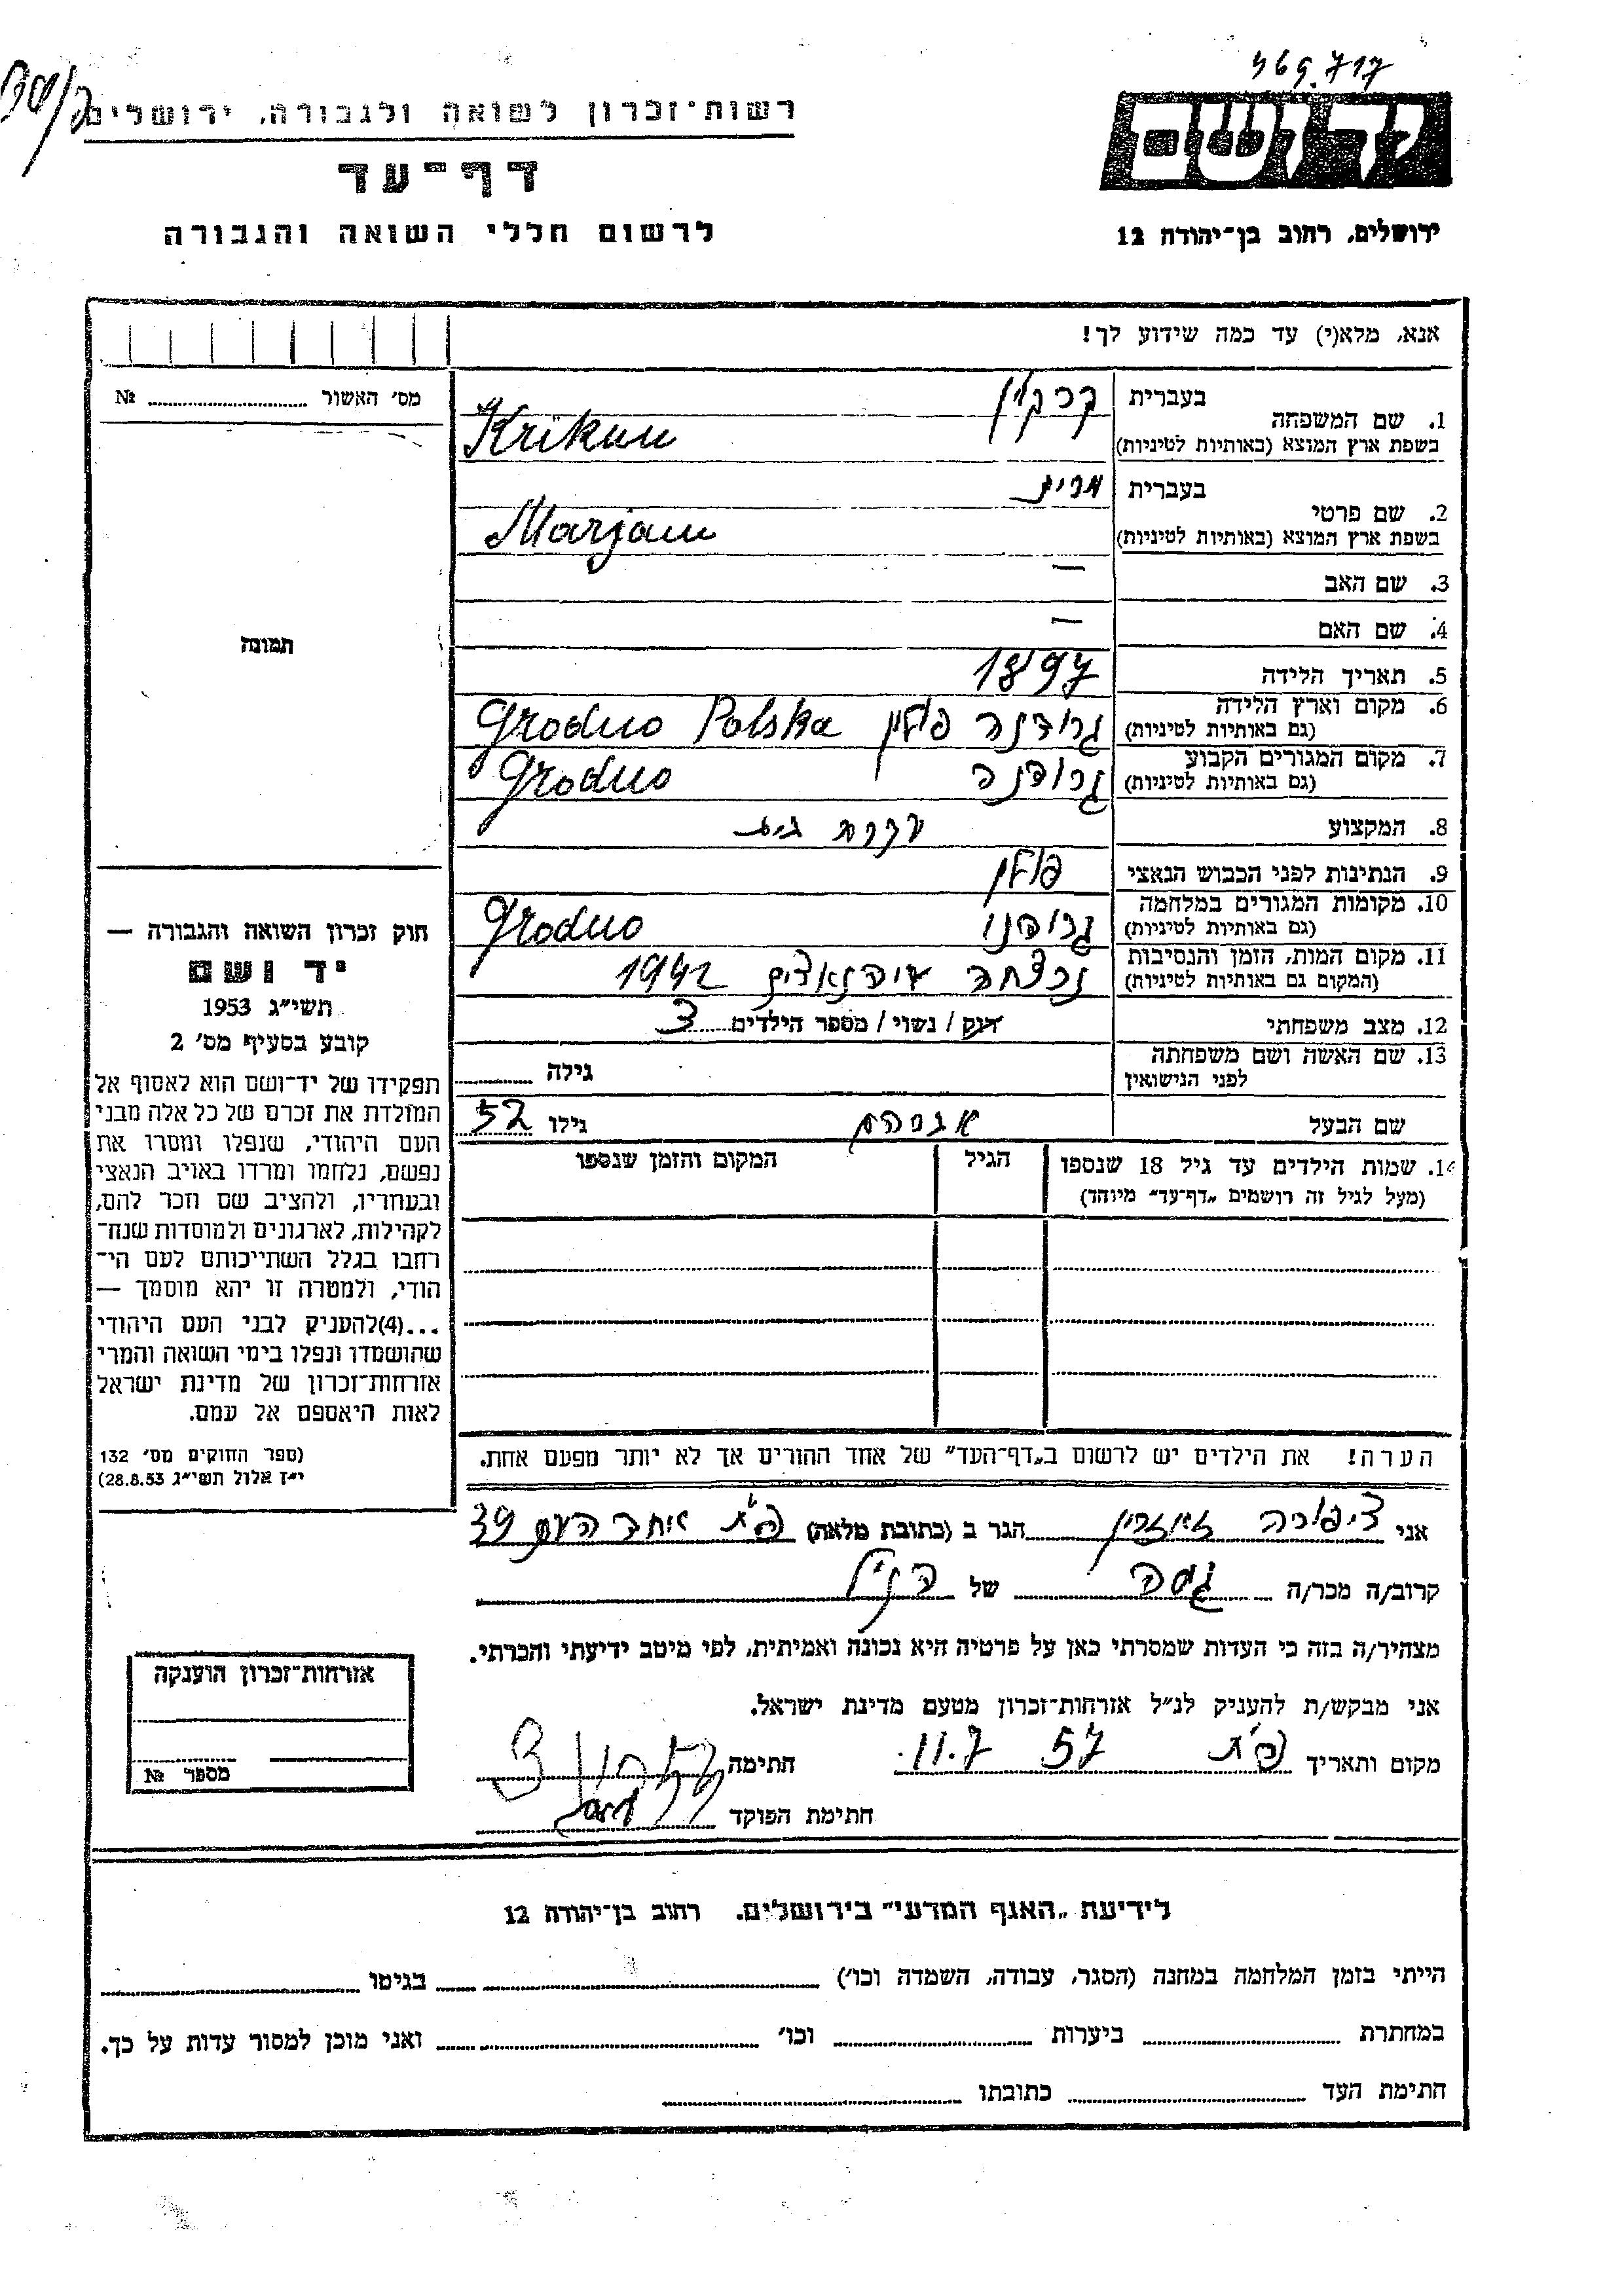 469.717
רשות־זכרון לשואה ולגבורה, ירושלים
דף־עד
לרשום חללי השואה והגבורה
ירושלים, רחוב בן־יהודה 12
אנא, מלא(י) עד כמה שידוע לך!
מס׳ האשור № 
1. שם המשפחה
בעברית
בשפת ארץ המוצא (באותיות לטיניות) Krikun
2. שם פרטי
בעברית מרים
בשפת ארץ המוצא (באותיות לטיניות) Marjam
3. שם האב —
4. שם האם —
5. תאריך הלידה 1897
6. מקום וארץ הלידה גרודנה פולין Grodno Polska
(גם באותיות לטיניות)
7. מקום המגורים הקבוע גרודנה Grodno
(גם באותיות לטיניות)
8. המקצוע עקרת בית
9. הנתינות לפני הכבוש הנאצי פולין
10. מקומות המגורים במלחמה גרודנו Grodno
(גם באותיות לטיניות)
11. מקום המות, הזמן והנסיבות נרצחה 1942
(המקום גם באותיות לטיניות)
12. מצב משפחתי רוק / נשוי / מספר הילדים 3
13. שם האשה ושם משפחתה
לפני הנישואין גילה
שם הבעל אברהם גילו 52
14. שמות הילדים עד גיל 18 שנספו
(מעל לגיל זה רושמים „דף־עד" מיוחד)
הגיל
המקום והזמן שנספו
הערה! את הילדים יש לרשום ב„דף־העד" של אחד ההורים אך לא יותר מפעם אחת.
תמונה
חוק זכרון השואה והגבורה —
יד ושם
תשי״ג 1953
קובע בסעיף מס׳ 2
תפקידו של יד־ושם הוא לאסוף אל
המולדת את זכרם של כל אלה מבני
העם היהודי, שנפלו ומסרו את
נפשם, נלחמו ומרדו באויב הנאצי
ובעחריו, ולהציב שם וזכר להם,
לקהילות, לארגונים ולמוסדות שנח־
רחבו בגלל השתייכותם לעם הי־
הודי, ולמטרה זו יהא מוסמך —
...(4)להעניק לבני העם היהודי
שהושמדו ונפלו בימי השואה והמרי
אזרחות־זכרון של מדינת ישראל
לאות היאספם אל עמם.
(ספר החוקים מס׳ 132
י״ז אלול תשי״ג 28.8.53)
אני ציפורה הגר ב (כתובת מלאה) פ״ת אחד העם 39
קרוב/ה מכר/ה גיסה של הנ״ל
מצהיר/ה בזה כי העדות שמסרתי כאן על פרטיה היא נכונה ואמיתית, לפי מיטב ידיעתי והכרתי.
אני מבקש/ת להעניק לנ״ל אזרחות־זכרון מטעם מדינת ישראל.
מקום ותאריך פ״ת 11.7 57 חתימה
חתימת הפוקד
אזרחות־זכרון הוענקה
מספר №
לידיעת „האגף המדעי" בירושלים. רחוב בן־יהודה 12
הייתי בזמן המלחמה במחנה (הסגר, עבודה, השמדה וכו׳) בגיטו
במחתרת ביערות וכו׳ ואני מוכן למסור עדות על כך.
חתימת העד כתובתו